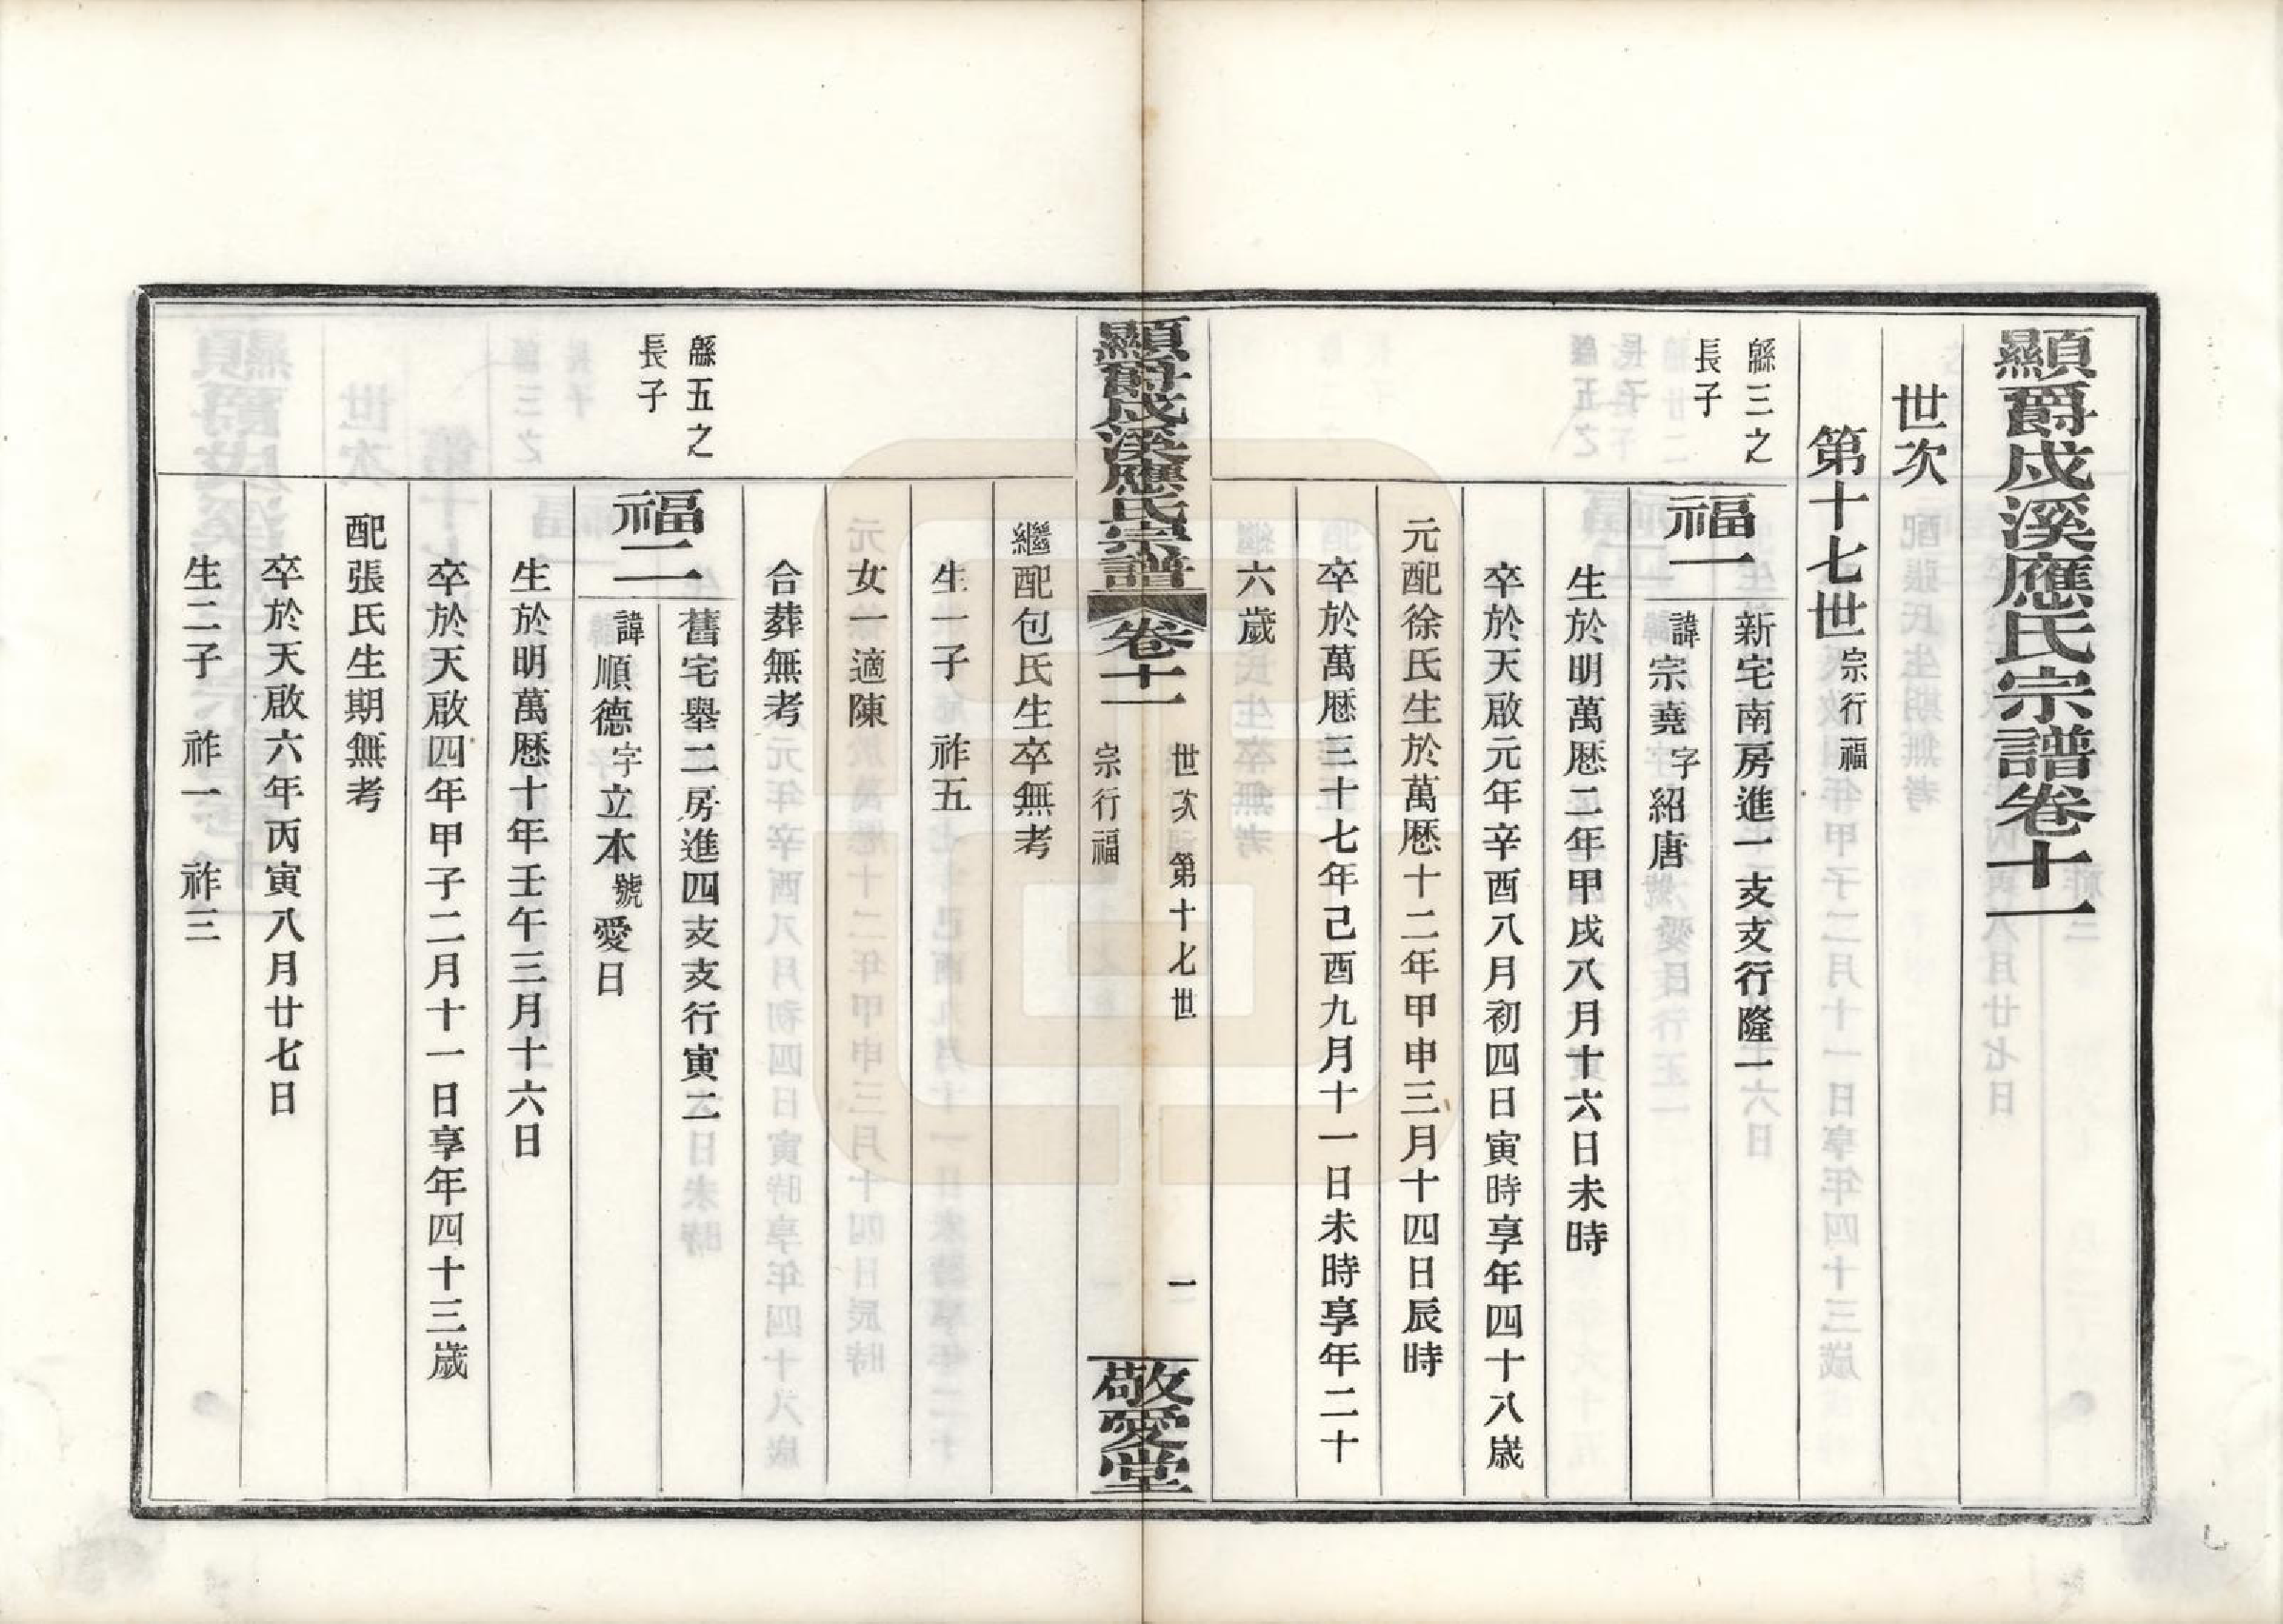 顯爵戍溪應氏宗譜卷十一
世次
第十七世宗行福
緜三之
長子
福一
新宅南房進一支支行隆一
諱宗堯字紹唐
生於明萬曆二年甲戌八月十六日未時
卒於天啟元年辛酉八月初四日寅時享年四十八歲
元配徐氏生於萬曆十二年甲申三月十四日辰時
卒於萬曆三十七年己酉九月十一日未時享年二十
六歲
顯爵戍溪應氏宗譜
卷十一
世次 第十七世
宗行福
一
敬愛堂
繼配包氏生卒無考
生一子 祚五
女一適陳
合葬無考
緜五之
長子
福二
舊宅舉二房進四支支行寅二
諱順德字立本號愛日
生於明萬曆十年壬午三月十六日
卒於天啟四年甲子二月十一日享年四十三歲
配張氏生期無考
卒於天啟六年丙寅八月廿七日
生二子 祚一 祚三